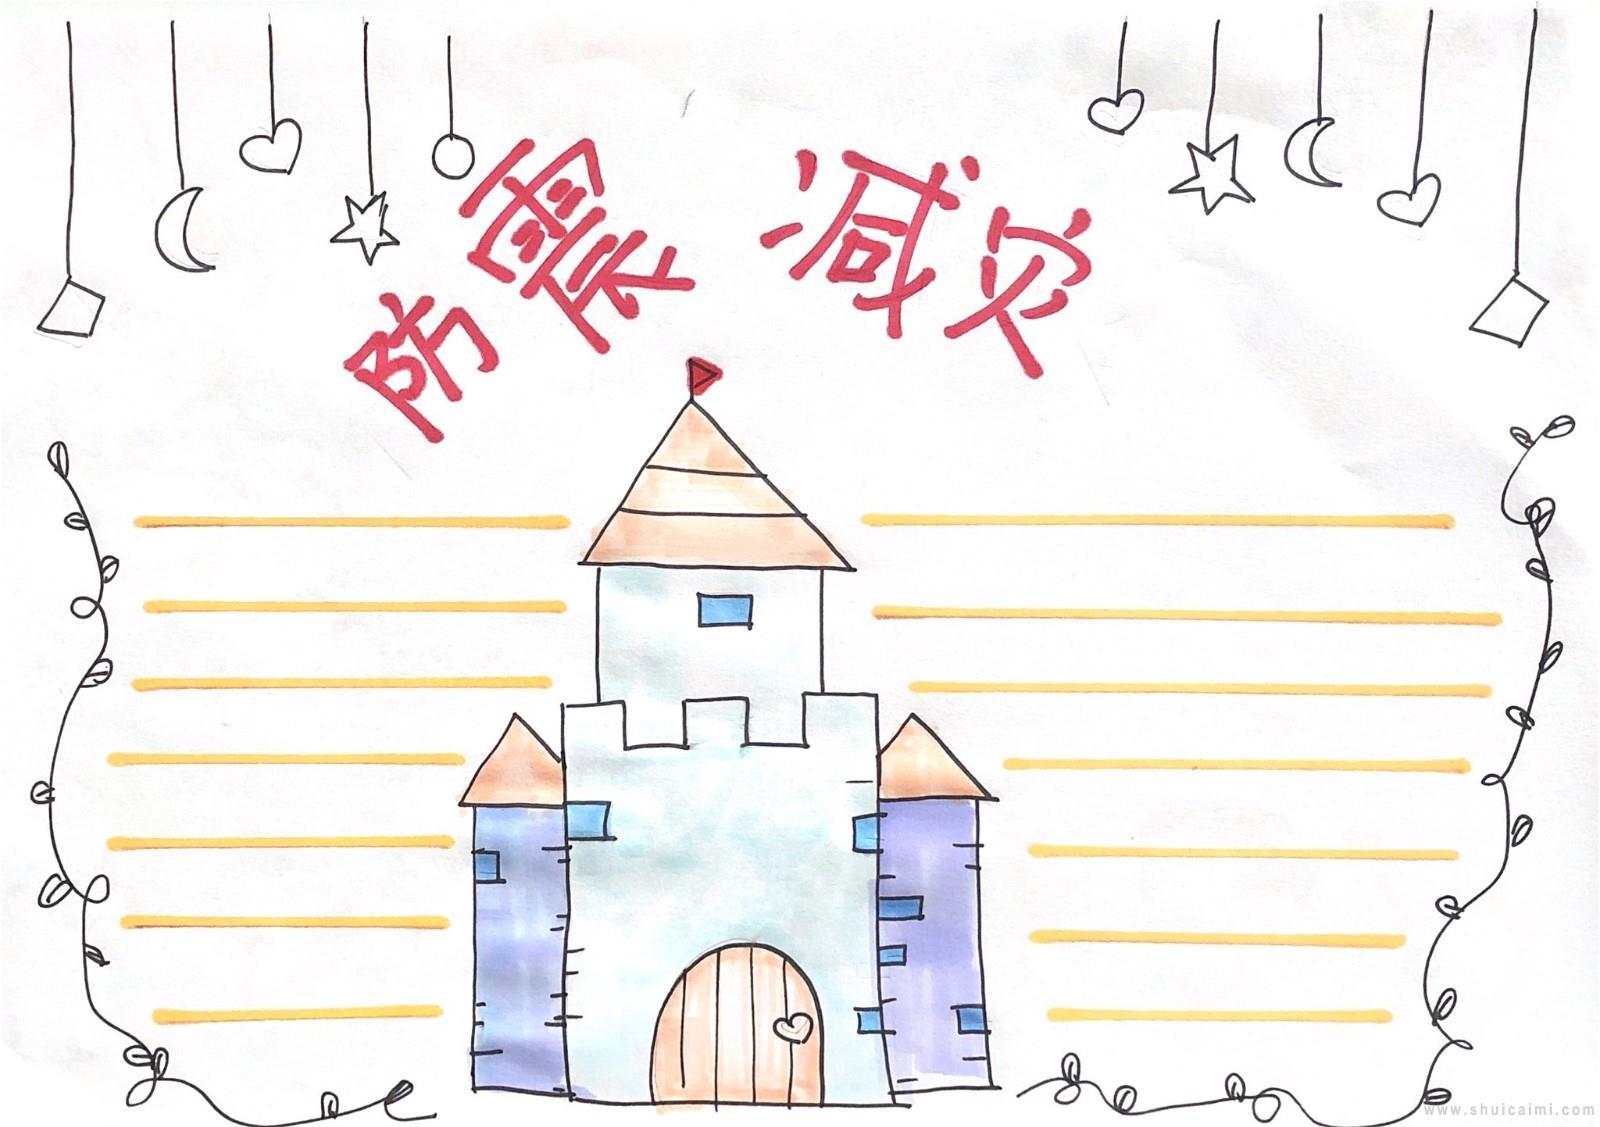 防震减灾
www.shuicaimi.com